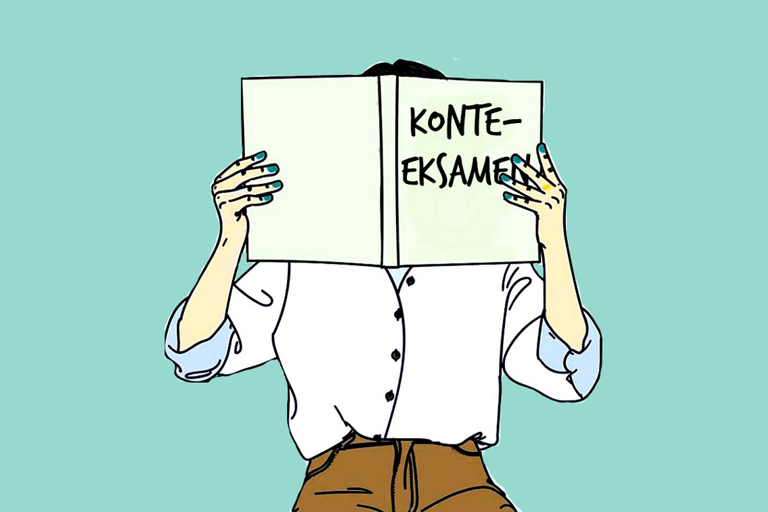 KONTE-
EKSAMEN